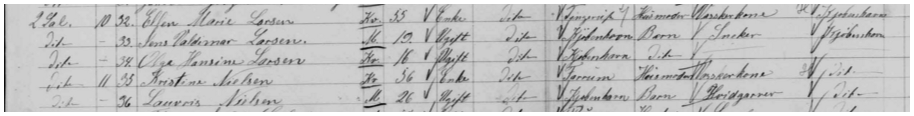 2 Sal. 10 32. Elsen Marie Larsen Kv. 55 Enke dito Husmoder Vaskerkone Kjøbenhavn
dito - 33. Jens Valdemar Larsen. M. 19 Ugift dito Kjøbenhavn Barn Kjøbenhavn
dito - 34. Olga Hansine Larsen Kv. 16 Ugift dito Kjøbenhavn dito
dito 11 35 Kristine Nielsen Kv. 56 Enke dito Husmoder Vaskerkone dito
dito - 36. Lauvris Nielsen M. 26 Ugift dito Kjøbenhavn Barn Hvidgarver dito